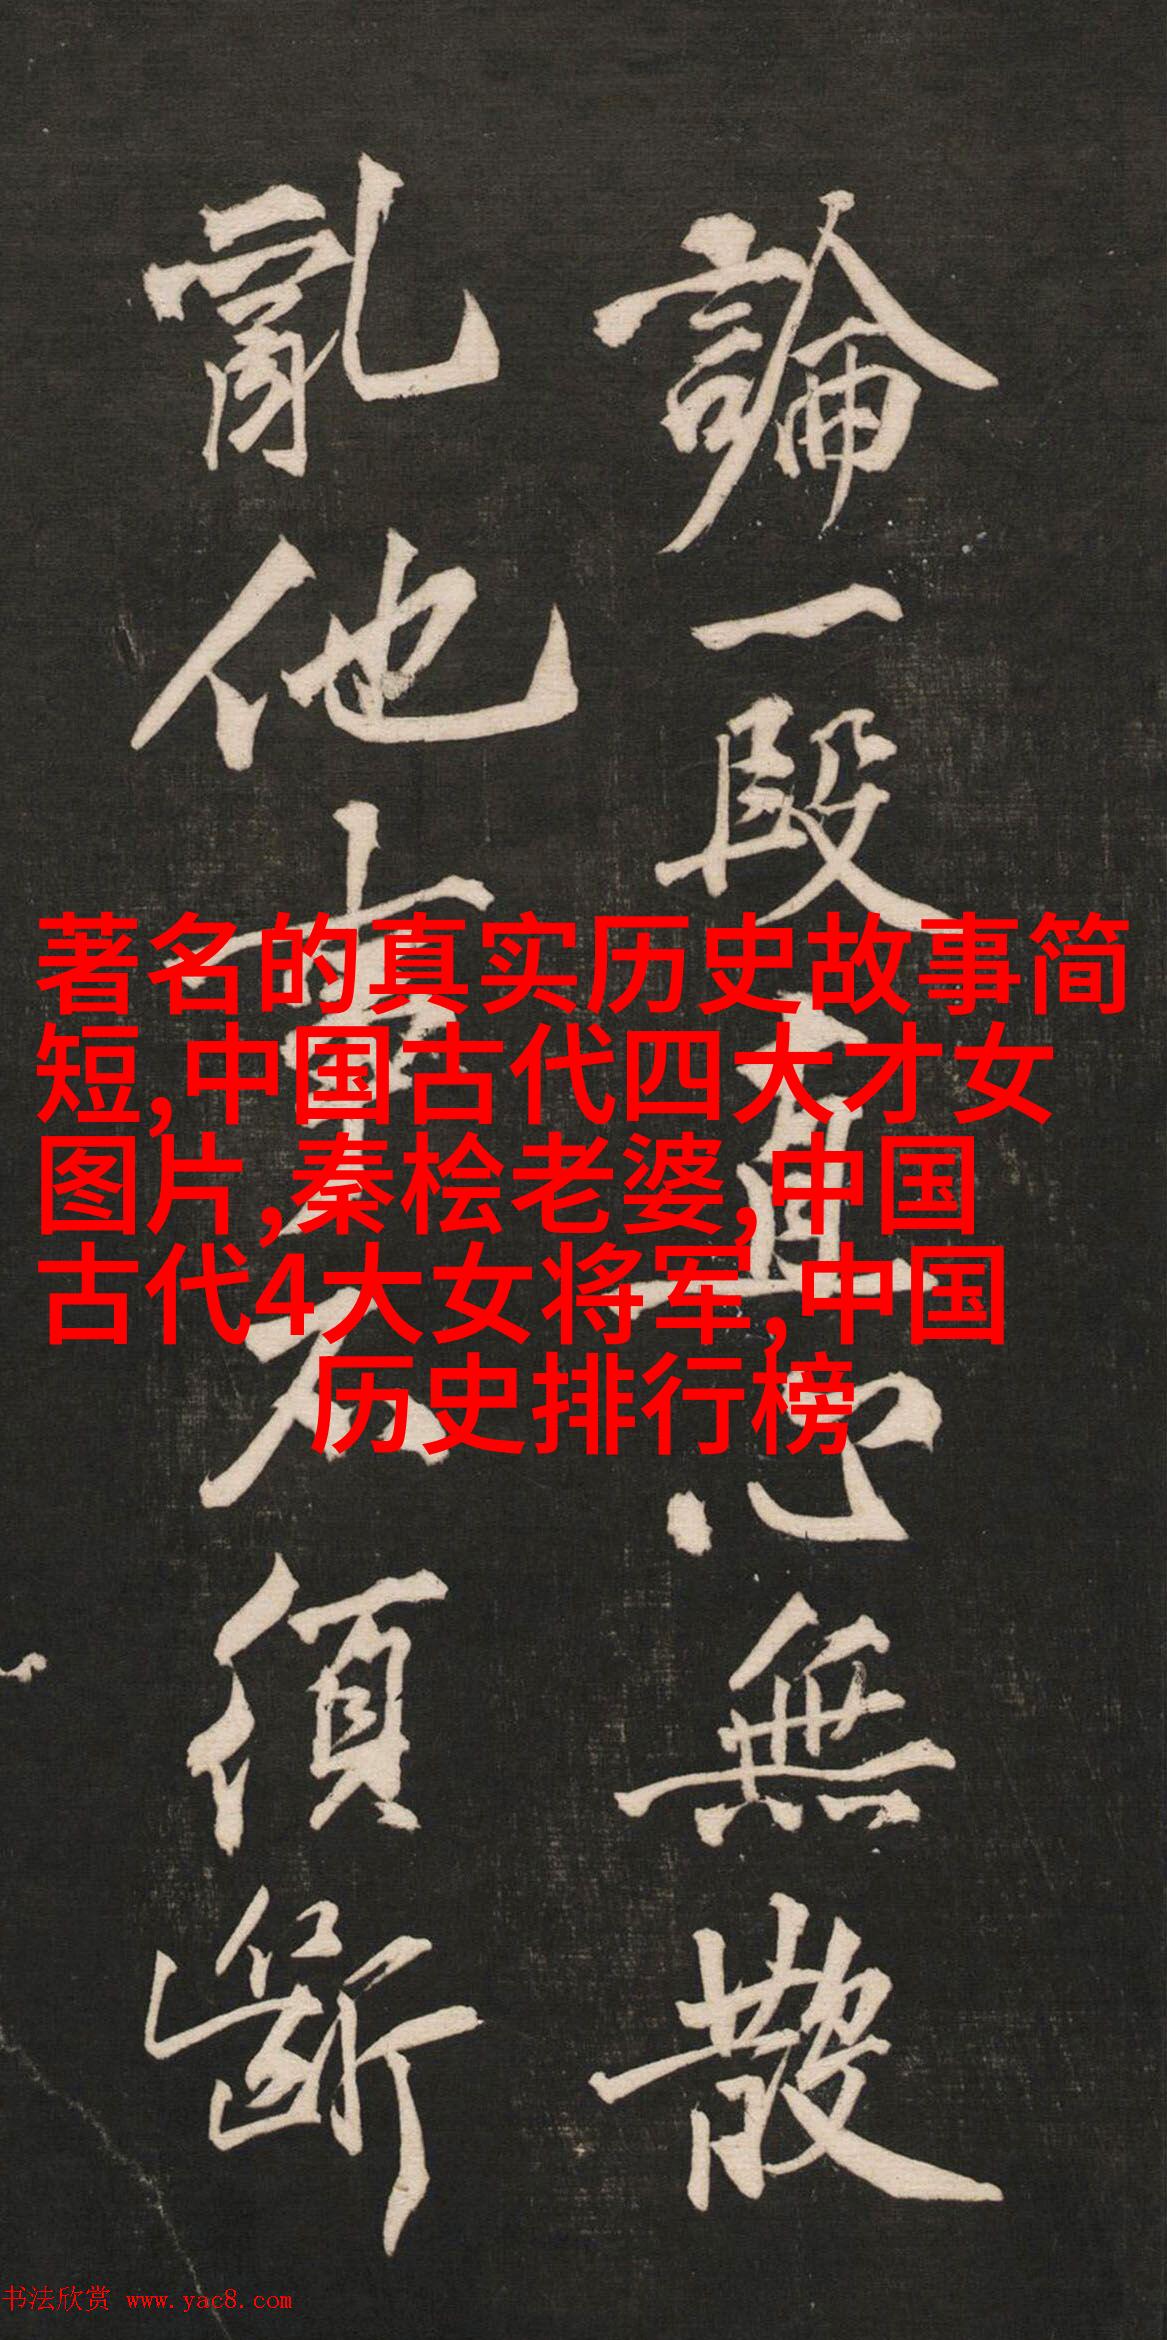 論一段直心無散
亂他事不須斷
著名的真实历史故事简
短,中国古代四大才女
图片,秦桧老婆,中国
古代4大女将军,中国
历史排行榜
书法欣赏 www.yac8.com